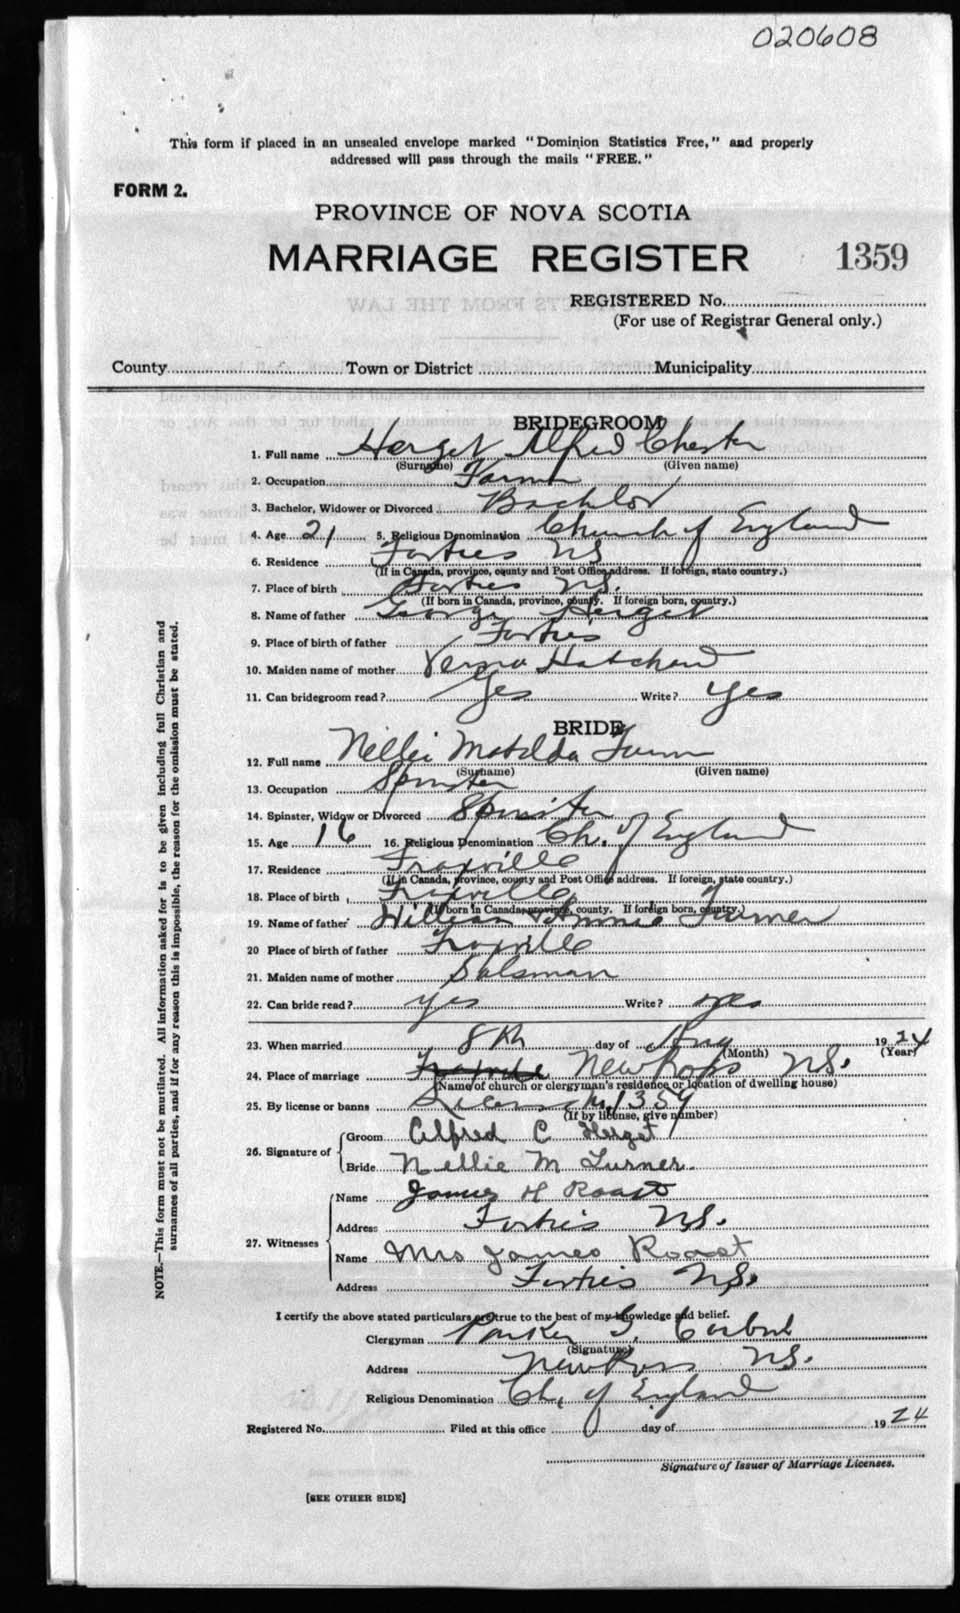 020608
This form if placed in an unsealed envelope marked "Dominion Statistics Free," and properly
addressed will pass through the mails "FREE."
FORM 2.
PROVINCE OF NOVA SCOTIA
MARRIAGE REGISTER 1359
REGISTERED No.
(For use of Registrar General only.)
County Town or District Municipality
BRIDEGROOM
1. Full name Herget Alfred Chester
(Surname) (Given name)
2. Occupation Farmer
3. Bachelor, Widower or Divorced Bachlor
4. Age 21 5. Religious Denomination Church of England
6. Residence Forties NS
(If in Canada, province, county and Post Office address. If foreign, state country.)
7. Place of birth Forties NS.
(If born in Canada, province, county. If foreign born, country.)
8. Name of father George Herget
9. Place of birth of father Forties
10. Maiden name of mother Verna Hatchard
11. Can bridegroom read? Yes Write? Yes
BRIDE
12. Full name Nellie Matilda Turner
(Surname) (Given name)
13. Occupation Spinster
14. Spinster, Widow or Divorced Spinster
15. Age 16 16. Religious Denomination Ch. of England
17. Residence Fraxville
(If in Canada, province, county and Post Office address. If foreign, state country.)
18. Place of birth Fraxville
(If born in Canada, province, county. If foreign born, country.)
19. Name of father William Turner
20 Place of birth of father Fraxville
21. Maiden name of mother Salsman
22. Can bride read? yes Write? yes
23. When married 8th day of Aug 1924
(Month) (Year)
24. Place of marriage Fraxville New Ross NS.
(Name of church or clergyman's residence or location of dwelling house)
25. By license or banns License No. 1359
(If by license, give number)
26. Signature of Groom Alfred C Herget
Bride Nellie M Turner.
27. Witnesses Name James H Roast
Address Forties NS.
Name Mrs James Roast
Address Forties NS.
I certify the above stated particulars are true to the best of my knowledge and belief.
Clergyman Parker G.
(Signature)
Address New Ross NS.
Religious Denomination Ch. of England
Registered No. Filed at this office day of 1924
Signature of Issuer of Marriage Licenses.
[SEE OTHER SIDE]
NOTE.—This form must not be mutilated. All information asked for is to be given including full Christian and
surnames of all parties, and if for any reason this is impossible, the reason for the omission must be stated.